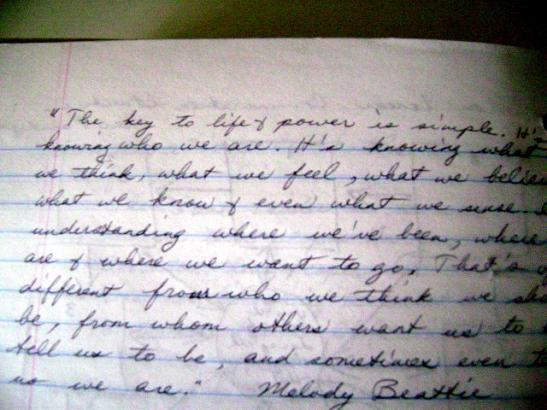 "The key to life & power is simple. It's
knowing who we are. It's knowing what
we think, what we feel, what we believe
what we know & even what we sense.
understanding where we've been, where
are & where we want to go. That's
different from who we think we
be, from whom others want us to
tell us to be, and sometimes even
no we are." Melody Beattie